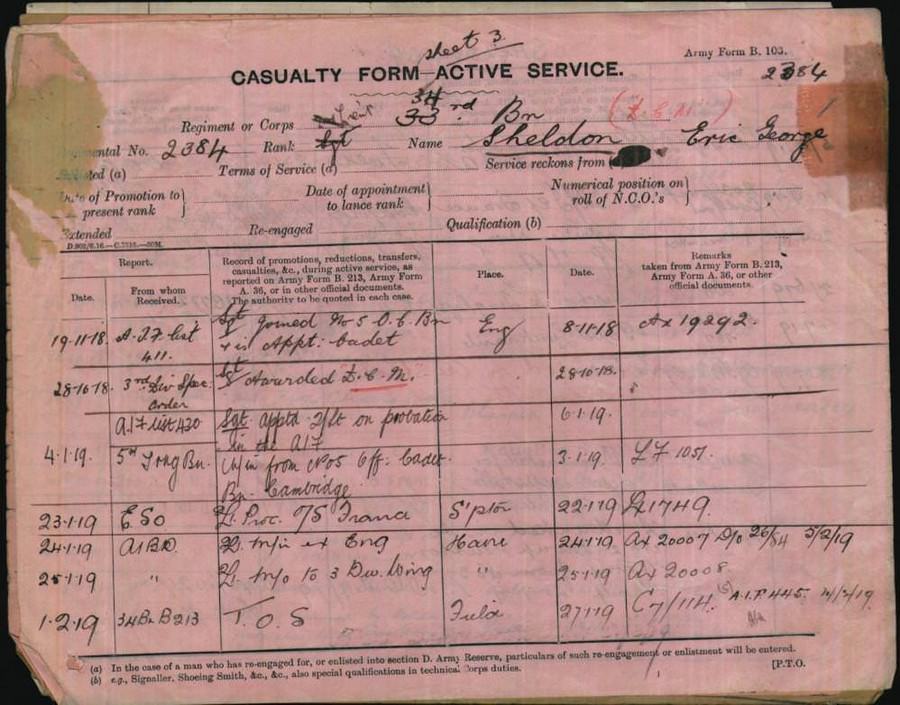 Sheet 3.
Army Form B. 103.
CASUALTY FORM—ACTIVE SERVICE.
2384
34
Regiment or Corps 33rd Bn (D.C.M.)
Regimental No. 2384 Rank Sgt Name Sheldon Eric George
Enlisted (a) Terms of Service (a) Service reckons from
Date of Promotion to present rank } Date of appointment to lance rank } Numerical position on roll of N.C.O.'s }
Extended Re-engaged Qualification (b)
Report.
Date. From whom Received.
Record of promotions, reductions, transfers, casualties, &c., during active service, as reported on Army Form B. 213, Army Form A. 36, or in other official documents. The authority to be quoted in each case.
Place.
Date.
Remarks taken from Army Form B. 213, Army Form A. 36, or other official documents.
19-11-18. A.I.F. List 411. Sgt Joined No 5 O.C. Bn Eng 8-11-18 Ax 19292.
& is Appt: Cadet
28-10-18. 3rd Div Spec. Order Sgt Awarded D.C.M. 28-10-18.
A.I.F list 430 Sgt apptd 2/Lt on probation 6.1.19.
in the AIF
4.1.19. 5th Trng Bn. M/in from No 5 Off: Cadet 3.1.19. LF 1051.
Bn. Cambridge
23.1.19 E So Lt. Proc. O/S France S'pton 22.1.19 1749.
24.1.19 A.I.B.D. Lt. M/in ex Eng Havre 24.1.19 Ax 20007 D/o 26/54 5/2/19
25.1.19 " Lt. M/o to 3 Div. Wing " 25.1.19 Ax 20008.
1.2.19 34 Bn B213 T.O.S Field 27.1.19 C7/1114. A.I.F. 445.
(a) In the case of a man who has re-engaged for, or enlisted into section D. Army Reserve, particulars of such re-engagement or enlistment will be entered.
(b) e.g., Signaller, Shoeing Smith, &c., &c., also special qualifications in technical Corps duties. [P.T.O.